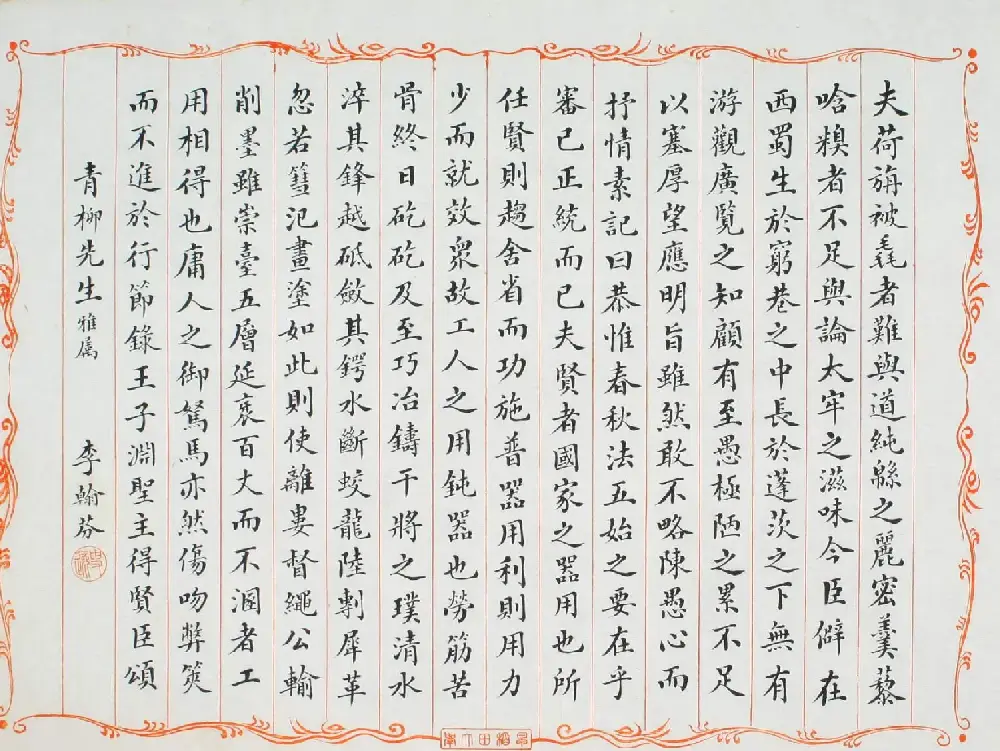 夫荷旃被毳者難與道純緜之麗密羹藜
唅糗者不足與論太牢之滋味今臣僻在
西蜀生於窮巷之中長於蓬茨之下無有
游觀廣覽之知顧有至愚極陋之累不足
以塞厚望應明旨雖然敢不略陳愚心而
抒情素記曰恭惟春秋法五始之要在乎
審已正統而已夫賢者國家之器用也所
任賢則趨舍省而功施普器用利則用力
少而就效衆故工人之用鈍器也勞筋苦
骨終日矻矻及至巧冶鑄干將之璞清水
淬其鋒越砥斂其鍔水斷蛟龍陸剸犀革
忽若篲氾畫塗如此則使離婁督繩公輸
削墨雖崇臺五層延袤百丈而不溷者工
用相得也庸人之御駑馬亦然傷吻弊筴
而不進於行節錄王子淵聖主得賢臣頌
青柳先生雅属
李翰芬